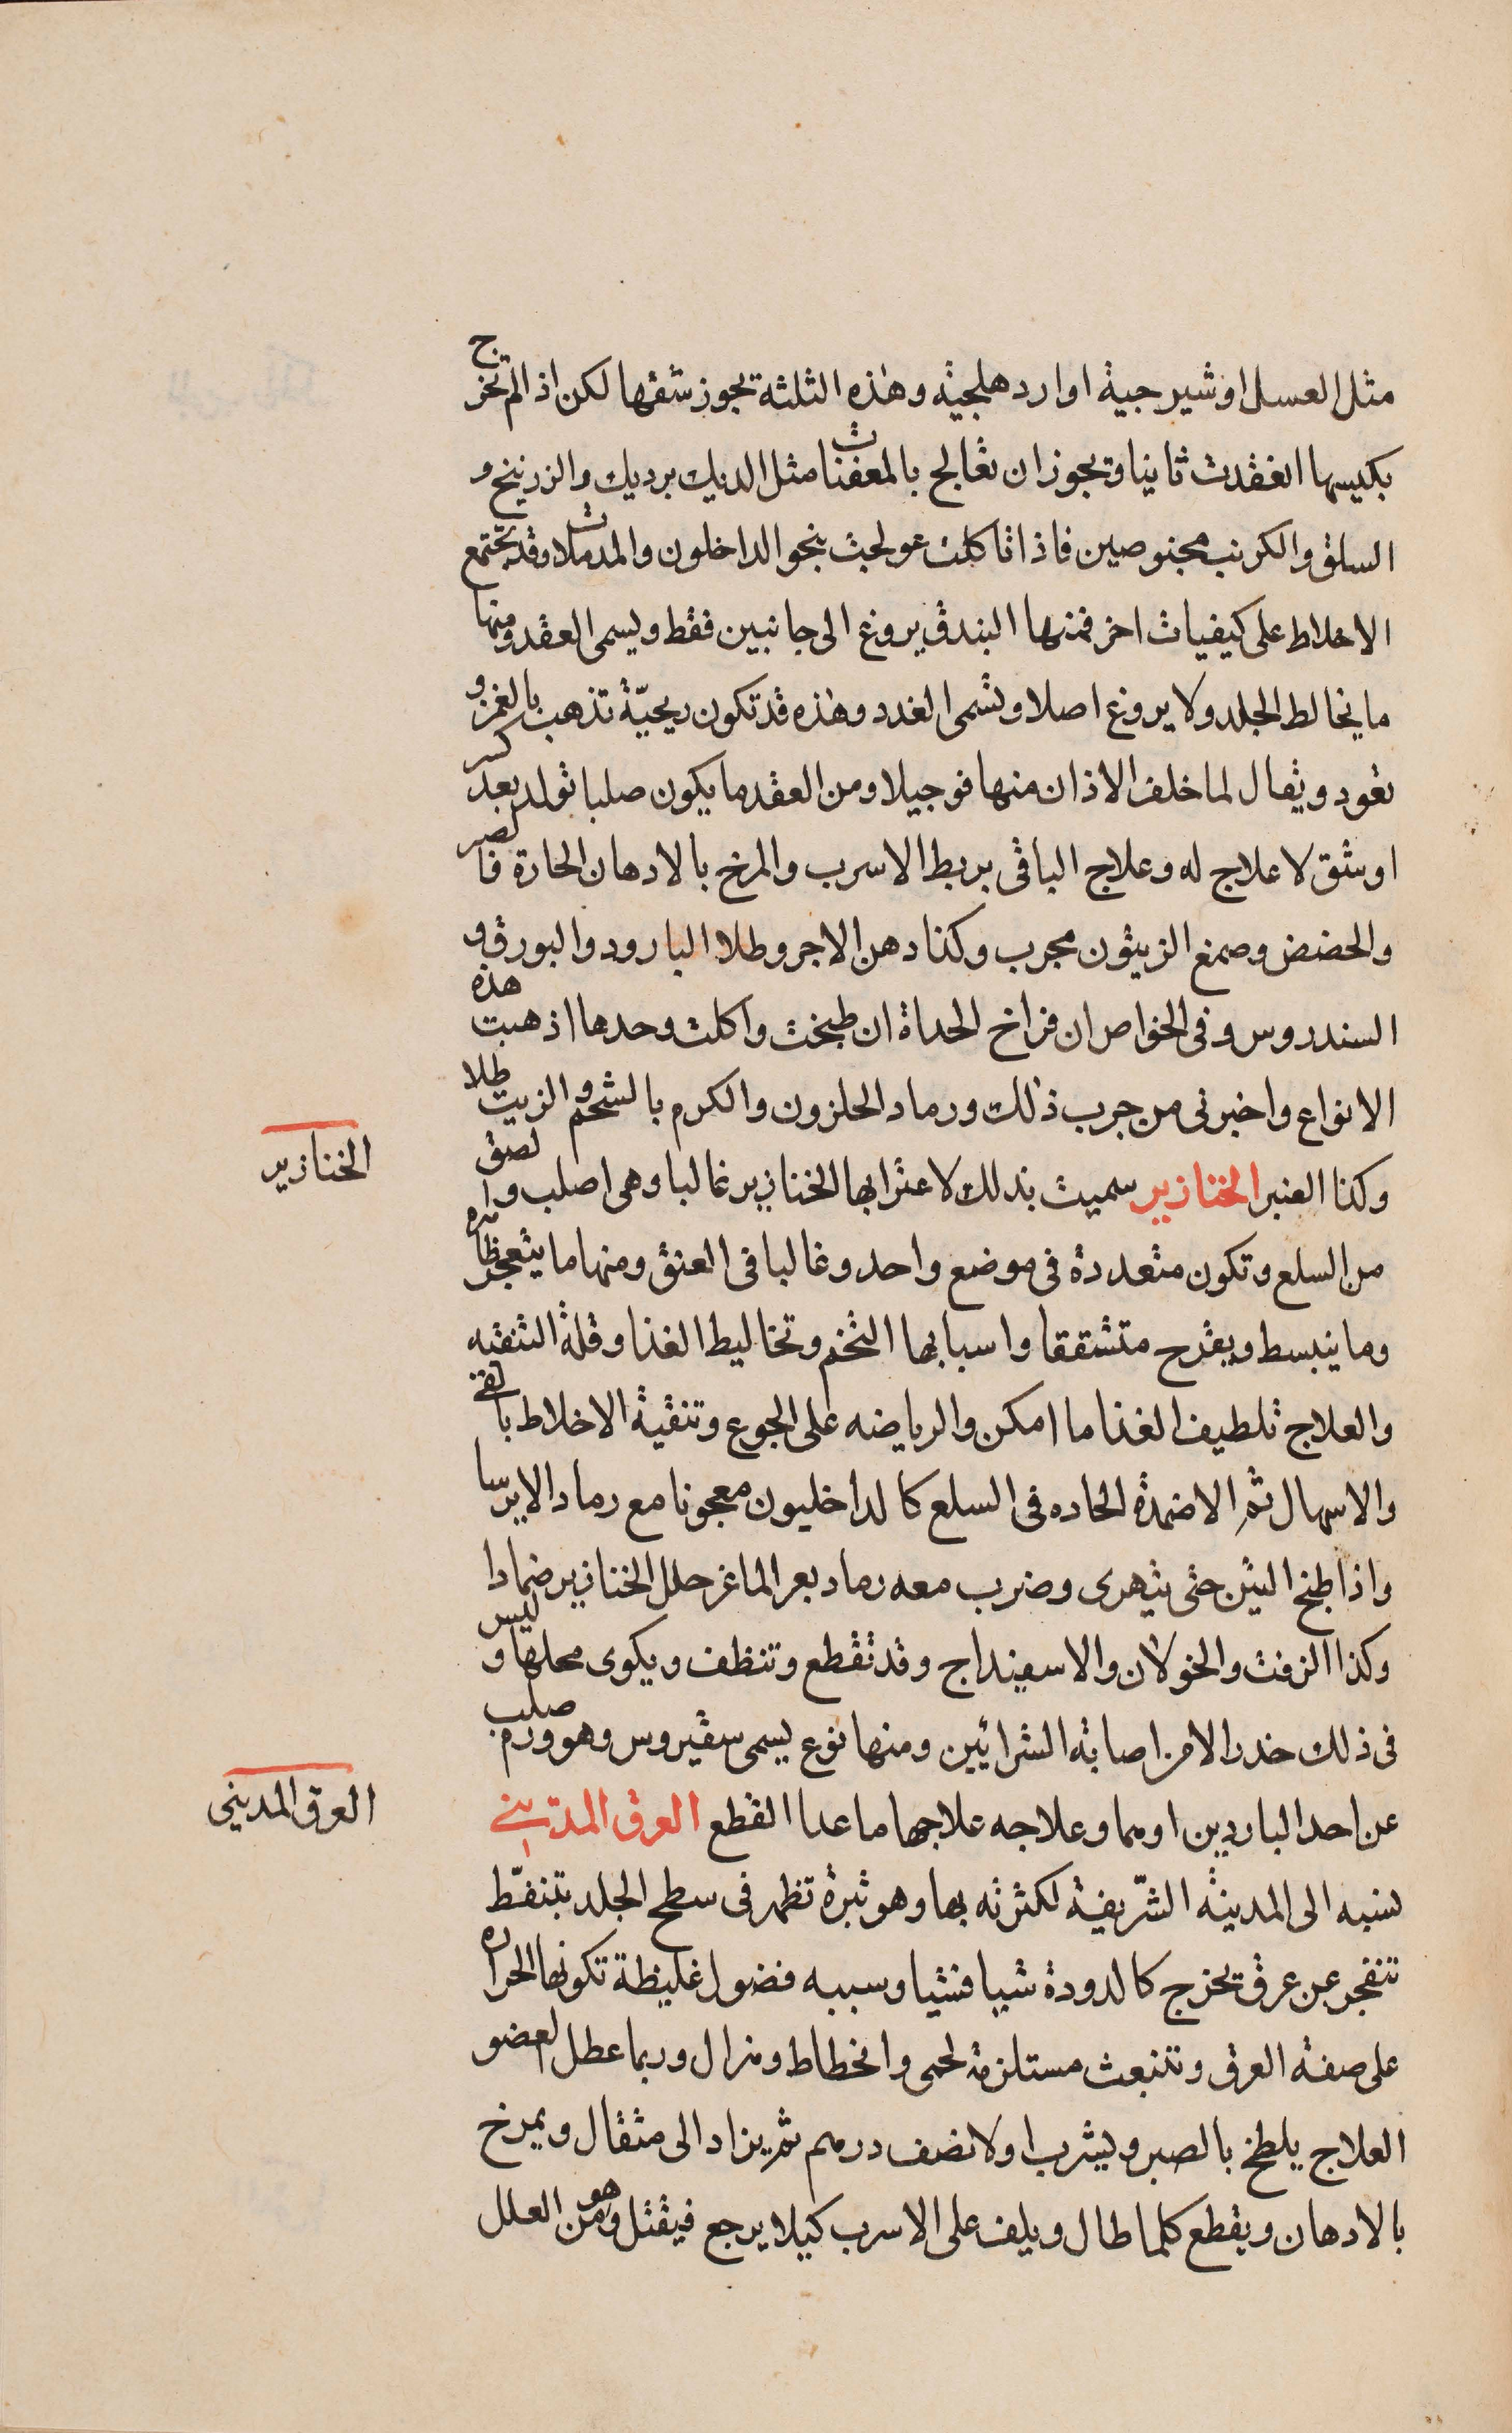 مثل العسل او شيرجية او اردهلجية وهذه الثلثة يجوز شقها لكن اذا لم تخرج
بكيسها انعقدت ثانيا ويجوز ان تعالج بالمعفنات مثل الديك برديك والزرنيخ و
السلق والكرنب مجنوصين فاذا تاكلت عولجت بنحو الداخلون والمدملات وقد تجتمع
الاخلاط على كيفيات اخر فمنها البندق يروغ الى جانبين فقط ويسمى العقد ومنها
ما يخالط الجلد ولا يروغ اصلا وتسمى الغدد وهذه قد تكون ريحيّة تذهب بالغمز و
تعود ويقال لما خلف الاذان منها فوجيلا ومن العقد ما يكون صلبا تولد بعد كسر
او شق لا علاج له وعلاج الباقى بربط الاسرب والمرخ بالادهان الحارة فالصبر
والحضض وصمغ الزيتون مجرب وكذا دهن الاجر وطلا البارود والبورق و
السندروس وفى الخواص ان فراخ الحداة ان طبخت واكلت وحدها اذهبت هذه
الانواع واخبرنى من جرب ذلك ورماد الحلزون والكرم بالشحم والزيت طلا
وكذا العنبر الخنازير سميت بذلك لاعترابها الخنازير غالبا وهى اصلب والصق
الخنازير
من السلع وتكون متعددة فى موضع واحد وغالبا فى العنق ومنها ما يتعجر ظاهره
وما ينبسط ويقرح متشققا واسبابها التخم وتخاليط الغذا وقلة التنقيه
والعلاج تلطيف الغذا ما امكن والرياضه على الجوع وتنقية الاخلاط بالقئ
والاسهال ثم الاضمدة الحاده فى السلع كالداخليون معجونا مع رماد الايرسا
واذا طبخ التين حتى يتهرى وضرب معه رماد بعر الماعز حلل الخنازير ضمادا
وكذا الزفت والخولان والاسفيداج وقد تقطع وتنظف ويكوى محلها وليس
فى ذلك خدر الا من اصابة الشرايين ومنها نوع يسمى سقيروس وهو ورم صلب
عن احد الباردين اوهما وعلاجه علاجها ما عدا القطع العرق المدينى
العرق المدينى
نسبه الى المدينة الشّريفة لكثرته بها وهو ثبرة تظهر فى سطح الجلد بتنفّط
تنفجر عن عرق يخرج كالدودة شيا فشيا وسببه فضول غليظة تكونها الحراره
على صفة العرق وتنبعث مستلزمة لحمى وانحطاط وهزال وربما عطل العضو
العلاج يلطخ بالصبر ويشرب اولا نصف درهم ثم يزاد الى مثقال ويمرخ
بالادهان ويقطع كلما طال ويلف على الاسرب كيلا يرجع فيقتل وهو من العلل